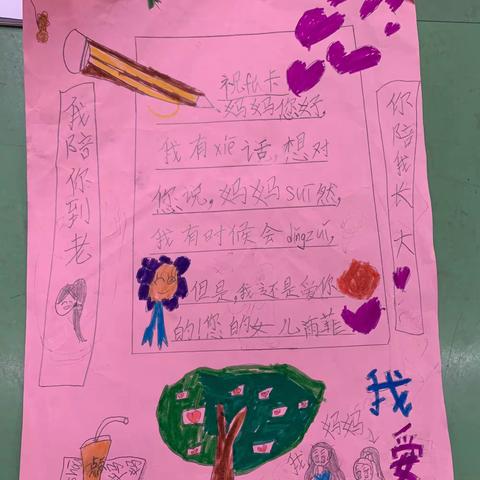 祝fú卡
妈妈您好,
我有xiē话,想对
您说,妈妈suī然,
我有时候会dǐngzuǐ,
但是,我还是爱你
的!您的女儿雨菲
我陪你到老
你陪我长大
妈妈
我
我爱